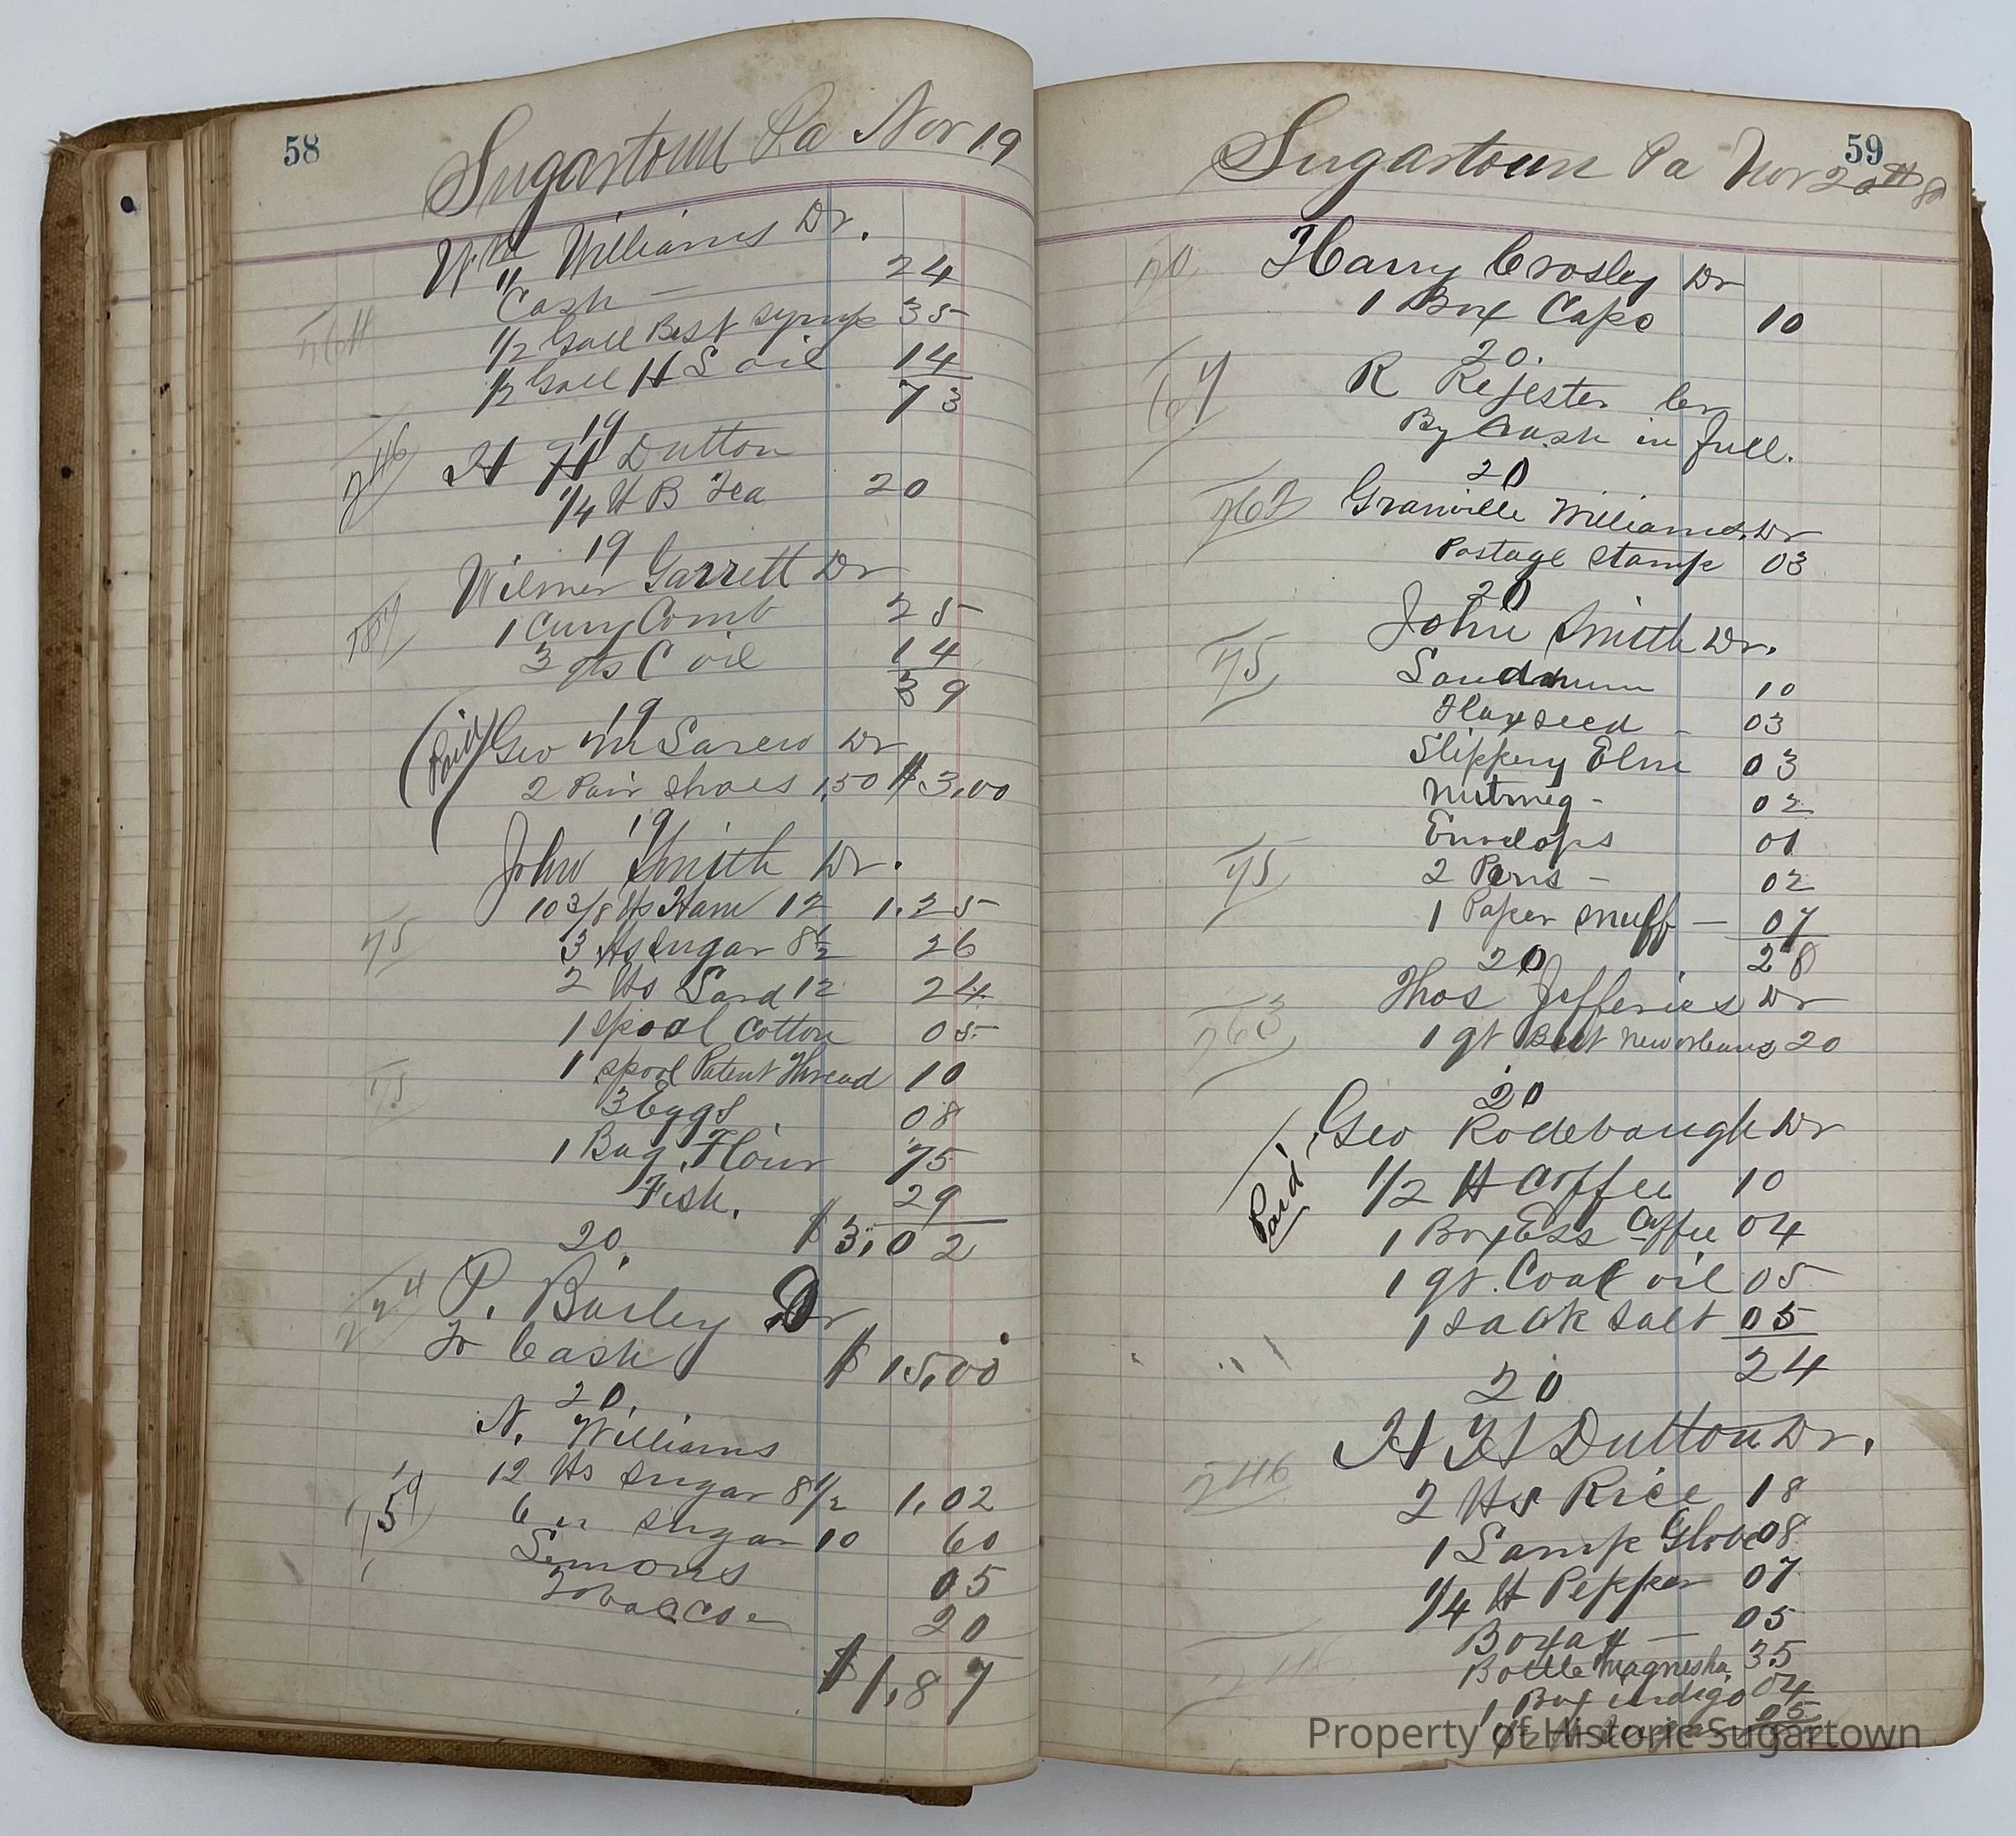 58
Sugartown Pa Nov 19
Wm Williams Dr.
Cash — 24
1/2 Gall Best Syrup 35
1/2 Gall H S oil 14
73
19
246 H H Dutton
1/4 lb B Tea 20
19
Wilmer Garrett Dr
1 Curry Comb 25
3 qts C oil 14
39
19
Paid Geo Dr
2 Pair Shoes 1,50 $3,00
19
John Smith Dr.
10 3/8 lbs Ham 12 1.25
75 3 lbs Sugar 8 1/2 26
2 lbs Lard 12 24
1 spool Cotton 05
1 spool Patent Thread 10
75 3 Eggs 08
1 Bag Flour 75
Fish. 29
20. $3,02
P. Barley Dr
To Cash $15,00
20.
N. Williams
12 lbs Sugar 8 1/2 1,02
6 " Sugar 10 60
Lemons 05
Tobacco 20
$1,87
59
Sugartown Pa Nov 20th 
70 Harry Crosley Dr
1 Box Caps 10
20.
R Rejester Cr
By Cash in full.
20
262 Granville Williams Dr
Postage Stamp 03
20
John Smith Dr.
75 Laudnum 10
Flaxseed - 03
Slippery Elm 03
Nutmeg - 02
Envelops 01
75 2 Pens - 02
1 Paper Snuff — 07
20 28
Thos Jefferies Dr
263 1 qt Best New orleans 20
20
Paid Geo Rodebaugh Dr
1/2 lb Coffee 10
1 Box Ess Coffee 04
1 qt. Coal oil 05
1 sack Salt 05
24
20
H H Dutton Dr.
246 2 lbs Rice 18
1 Lamp Globe 08
1/4 lb Pepper 07
Borax — 05
Bottle Magnesha 35
1 Box indigo 04
05
Property of Historic Sugartown